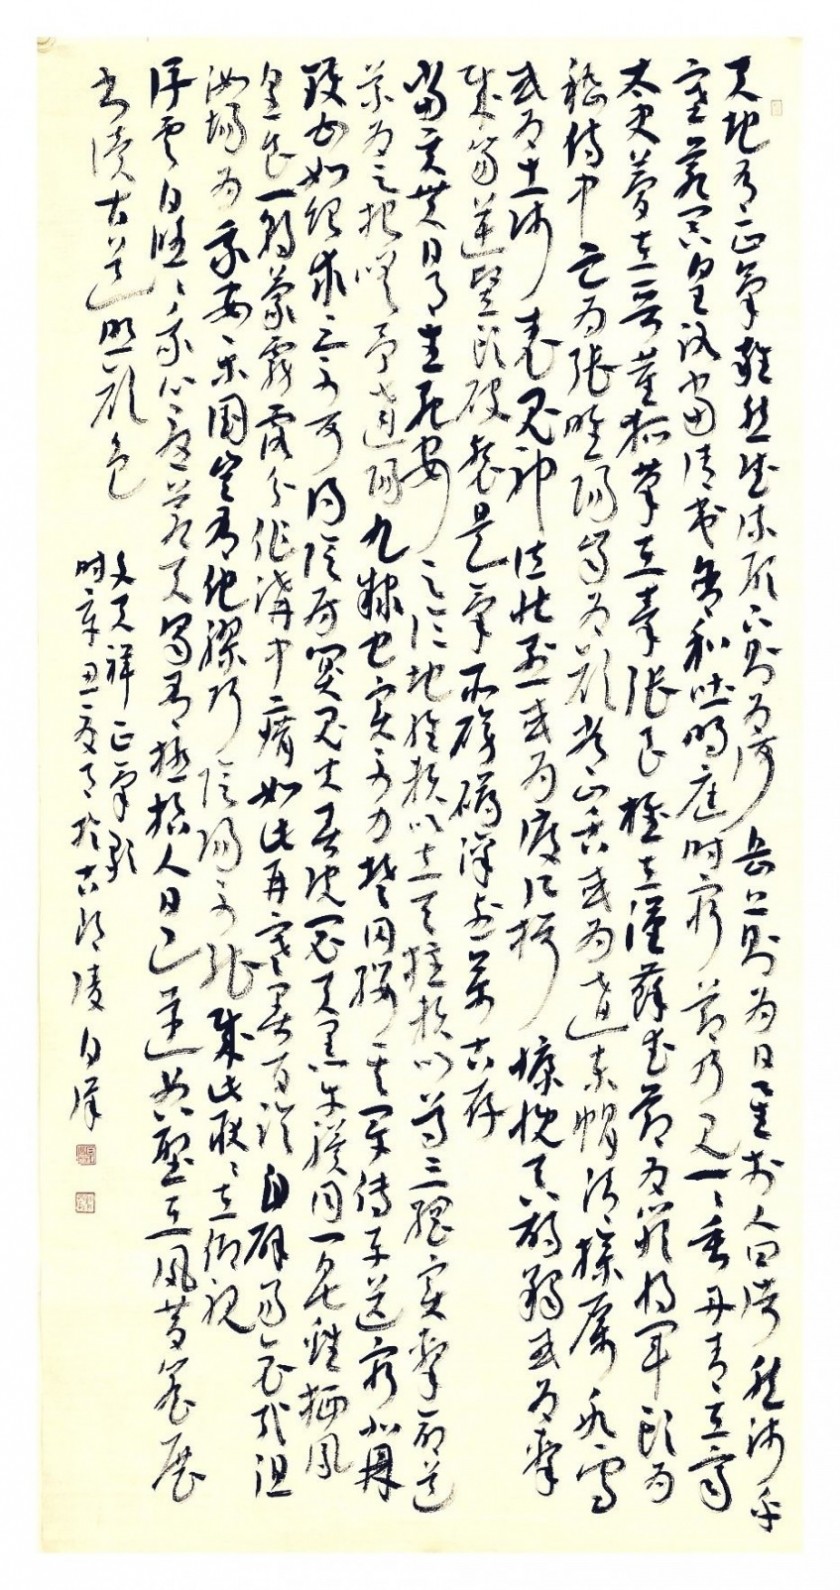 天地有正氣雜然賦流形下則為河岳上則為日星於人曰浩然沛乎
塞蒼冥皇路當清夷含和吐明庭時窮節乃見一一垂丹青在齊
太史簡在晉董狐筆在秦張良椎在漢蘇武節為嚴將軍頭為
嵇侍中血為張睢陽齒為顏常山舌或為遼東帽清操厲冰雪
或為出師表鬼神泣壯烈或為渡江楫慷慨吞胡羯或為擊
賊笏逆豎頭破裂是氣所磅礴凜烈萬古存
當其貫日月生死安足論地維賴以立天柱賴以尊三綱實繫命道
義為之根嗟予遘陽九隸也實不力楚囚纓其冠傳車送窮北鼎
鑊甘如飴求之不可得陰房闃鬼火春院閟天黑牛驥同一皂雞棲鳳
凰食一朝蒙霧露分作溝中瘠如此再寒暑百沴自辟易哀哉沮
洳場為我安樂國豈有他繆巧陰陽不能賊顧此耿耿在仰視
浮雲白悠悠我心悲蒼天曷有極哲人日已遠典型在夙昔風簷展
書讀古道照顏色
文天祥正氣歌
時辛丑夏月於古陵白